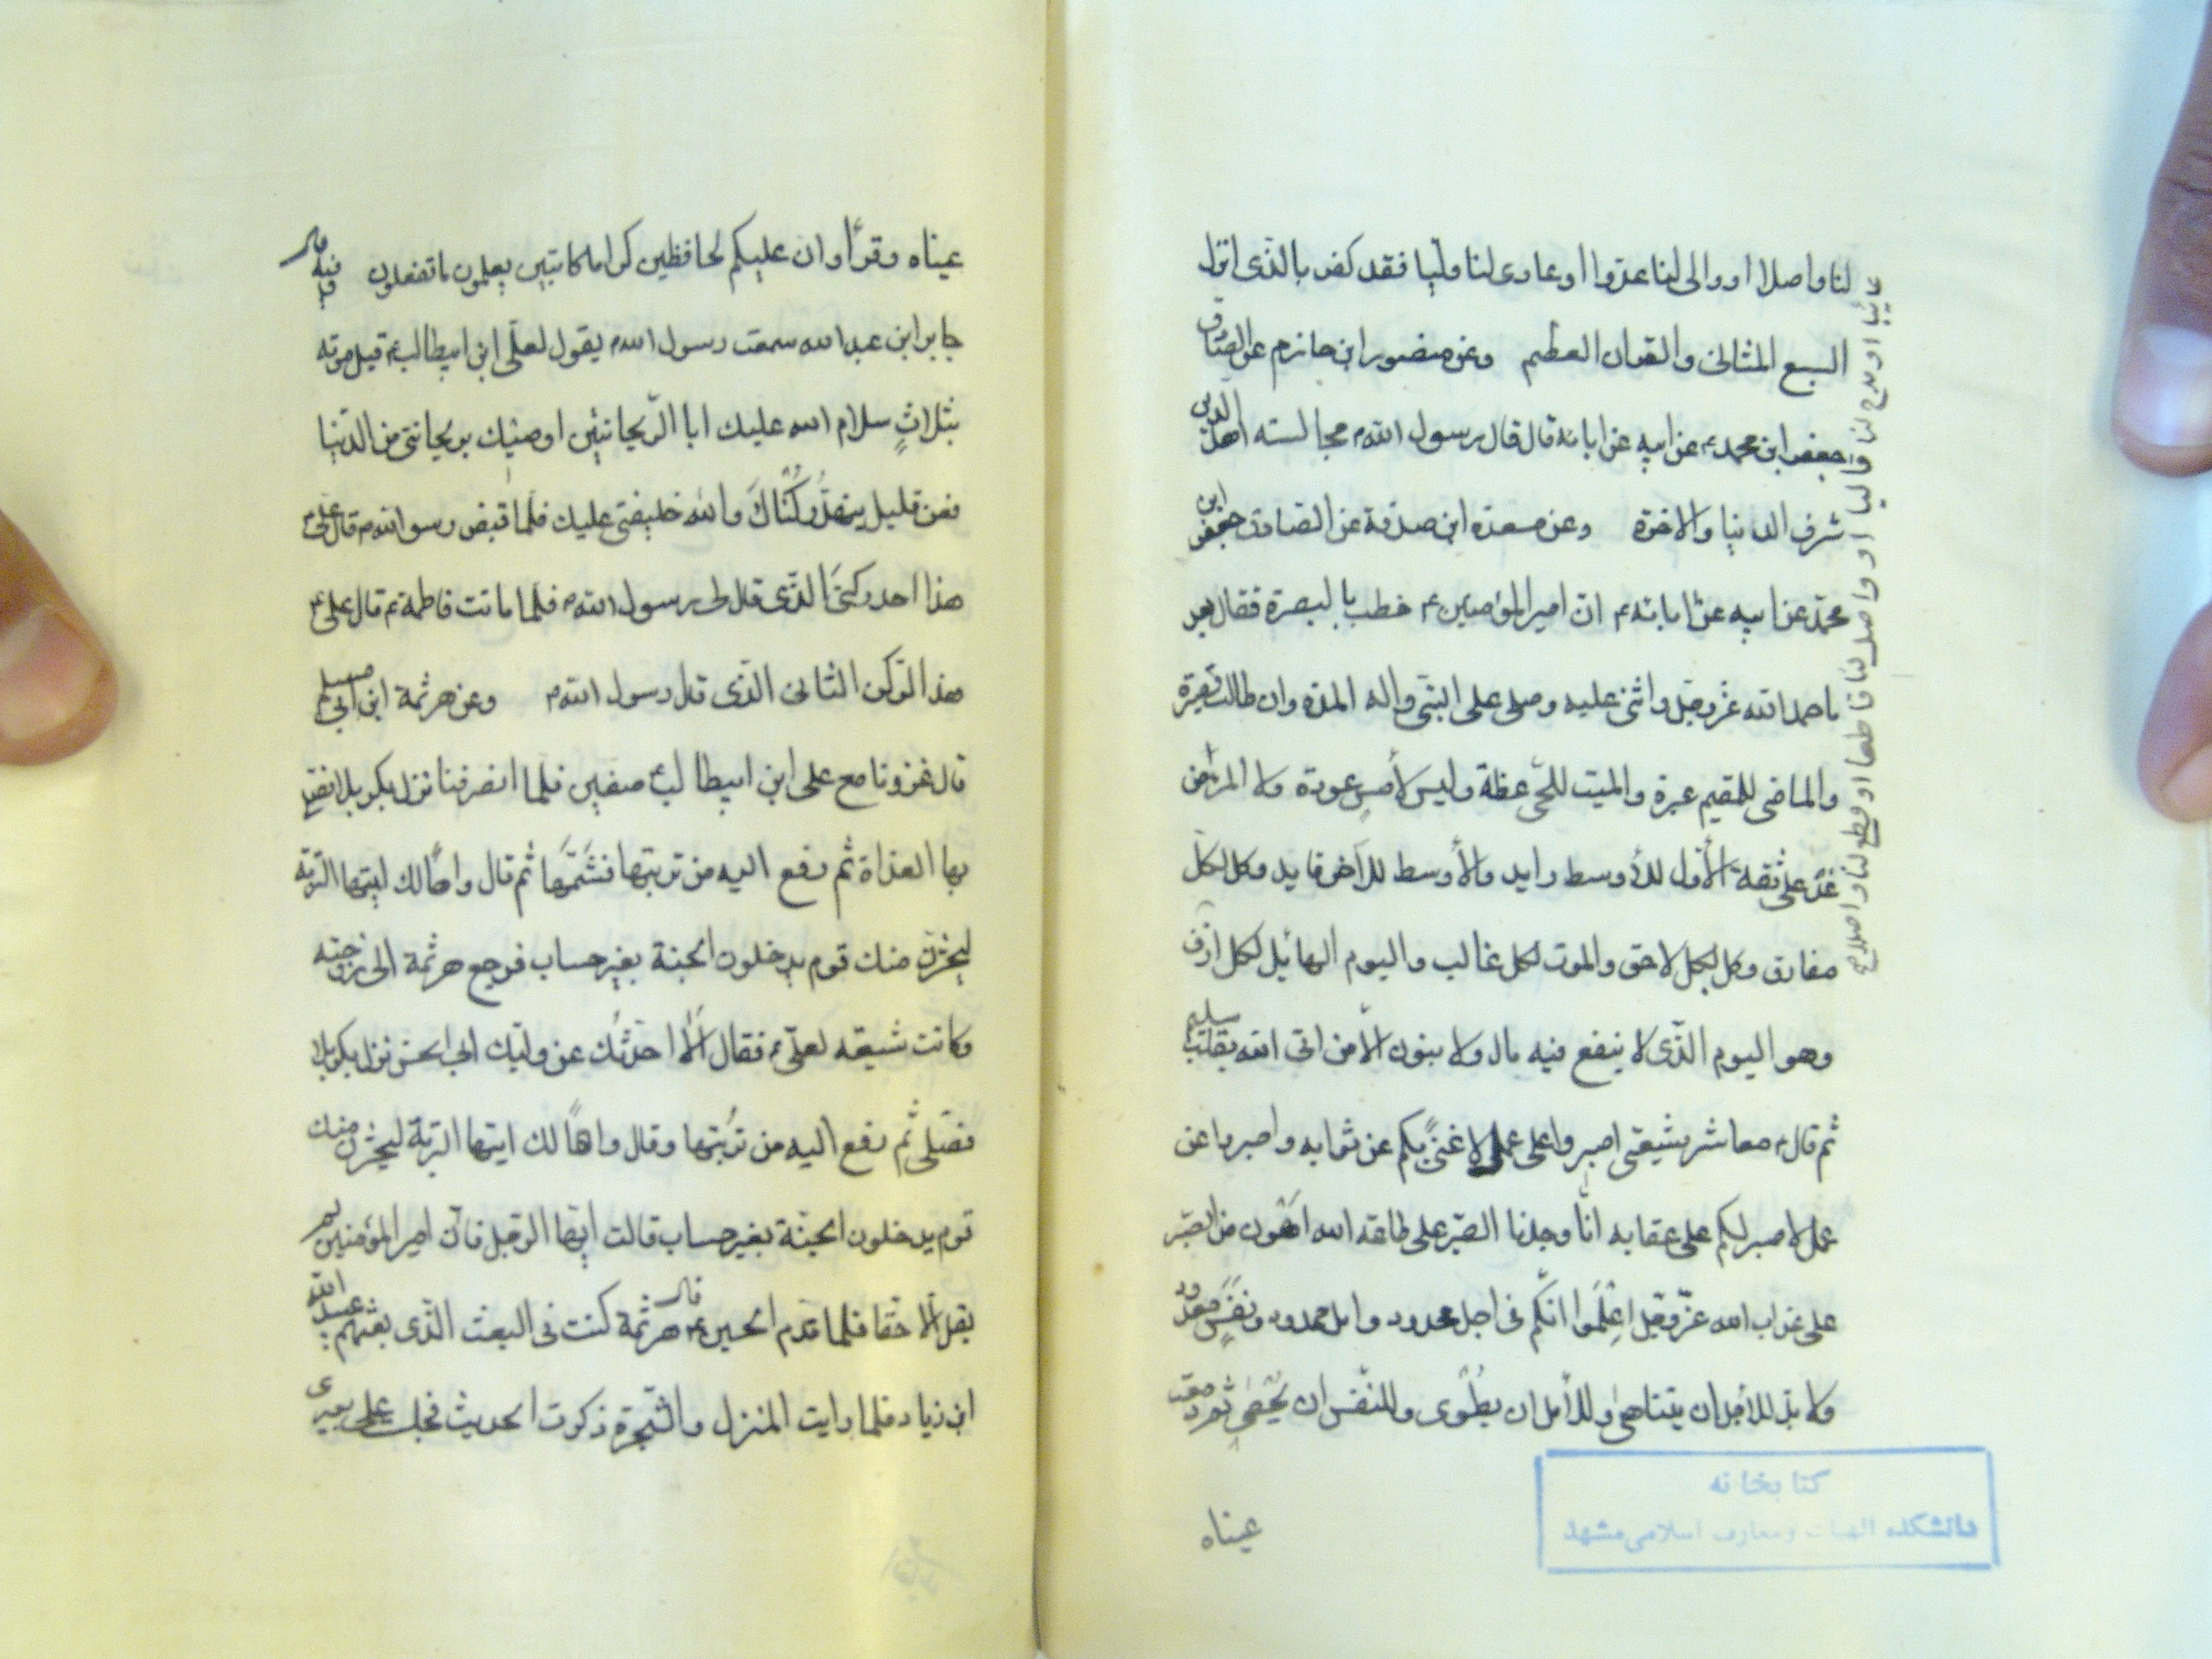 لنا واصلا او والى لنا عدوا او عادى لنا وليا فقد كفر بالذى انزل
السبع المثانى والقران العظيم وعن منصور ابن حازم عن الصادق
جعفر ابن محمد ع عن ابيه عن ابائه قال قال رسول الله ص مجالسته اهل الدين
شرف الدنيا والاخرة وعن مسعدة ابن صدقة عن الصادق جعفر ابن
محمد عن ابيه عن ابائه ع ان امير المؤمنين ع خطب بالبصرة فقال بعد
ما حمد الله عز وجل واثنى عليه وصلى على النبى واله المدة وان طالت قصيرة
والماضى للمقيم عبرة والميت للحى عظة وليس لأمس عودة ولا المرء من
غد على ثقة الأول للأوسط رايد والأوسط للآخر قايد وكل لكل
مفارق وكل بكل لاحق والموت لكل غالب واليوم الهائيل لكل ازف
وهو اليوم الذى لا ينفع فيه مال ولا بنون الا من اتى الله بقلب سليم
ثم قال ع معاشر شيعتى اصبروا على عمل لا غنى بكم عن ثوابه واصبروا عن
عمل لا صبر لكم على عقابه انا وجدنا الصبر على طاعة الله اهون من الصبر
على عذاب الله عز وجل اعلموا انكم فى اجل محدود وامل ممدود ونفس معدود
ولا بد للأجل ان يتناهى وللأمل ان يطوى وللنفس ان يحصى ثم دمعت
عيناه
وليا او واصل لنا قاطعا او قطع لنا واصلا
كتابخانه
دانشكده الهيات ومعارف اسلامى مشهد
عيناه وقرأ وان عليكم لحافظين كراما كاتبين يعلمون ما تفعلون وفيه قال
جابر ابن عبد الله سمعت رسول الله ص يقول لعلى ابن ابيطالب ع قبل موته
بثلاث سلام الله عليك ابا الريحانتين اوصيك بريحانتى من الدنيا
فعن قليل ينهد ركناك والله خليفتى عليك فلما قبض رسول الله ص قال على ع
هذا احد ركنى الذى قال لى رسول الله ص فلما ماتت فاطمة ع قال على ع
هذا الركن الثانى الذى قال رسول الله ص وعن هرثمة ابن ابى مسلم
قال غزونا مع على ابن ابيطالب ع صفين فلما انصرفنا نزل بكربلا فصلى
بها الغداة ثم رفع اليه من تربتها فشمها ثم قال واها لك ايتها التربة
ليحشرن منك قوم يدخلون الجنة بغير حساب فرجع هرثمة الى زوجته
وكانت شيعته لعلى ع فقال الا احدثك عن وليك ابى الحسن نزل بكربلا
فصلى ثم رفع اليه من تربتها وقال واها لك ايتها التربة ليحشرن منك
قوم يدخلون الجنة بغير حساب قالت ايها الرجل فان امير المؤمنين لم
يقل الا حقا فلما قدم الحسين ع قال هرثمة كنت فى البعث الذى بعثهم عبيد الله
ابن زياد فلما رايت المنزل والشجرة ذكرت الحديث فجلست على بعيرى